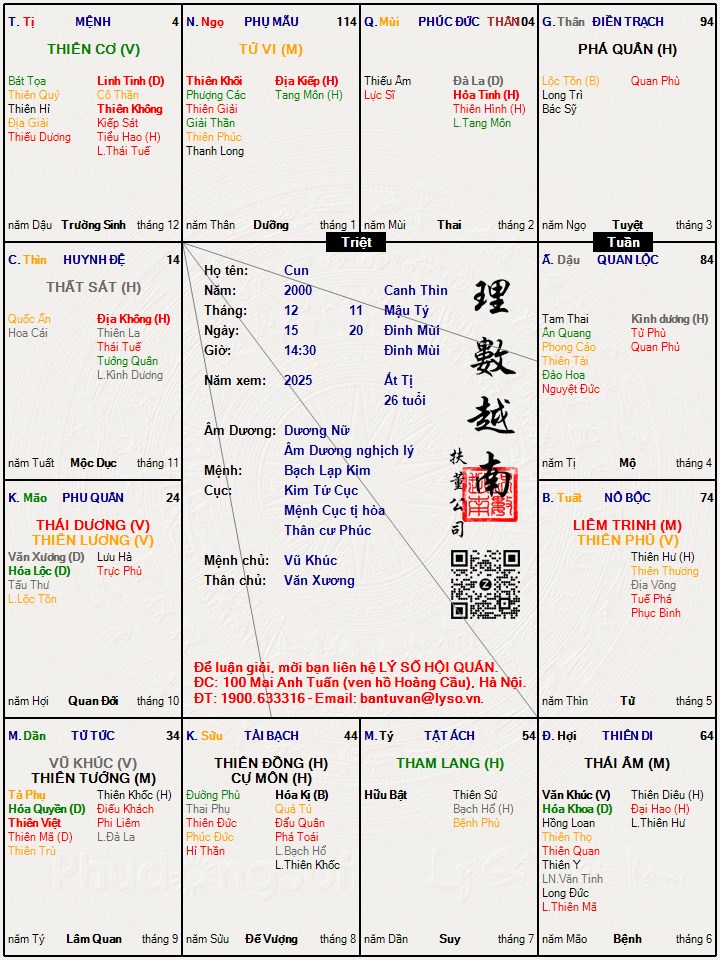 T. Tị MỆNH 4
THIÊN CƠ (V)
Bát Tọa Linh Tinh (D)
Thiên Quý Cô Thần
Thiên Hỉ Thiên Không
Địa Giải Kiếp Sát
Thiếu Dương Tiểu Hao (H)
L.Thái Tuế
năm Dậu Trường Sinh tháng 12
N. Ngọ PHỤ MẪU 114
TỬ VI (M)
Thiên Khôi Địa Kiếp (H)
Phượng Các Tang Môn (H)
Thiên Giải
Giải Thần
Thiên Phúc
Thanh Long
năm Thân Dưỡng tháng 1
Q. Mùi PHÚC ĐỨC THÂN 104
Thiếu Âm Đà La (D)
Lực Sĩ Hỏa Tinh (H)
Thiên Hình (H)
L.Tang Môn
năm Mùi Thai tháng 2
G. Thân ĐIỀN TRẠCH 94
PHÁ QUÂN (H)
Lộc Tồn (B) Quan Phủ
Long Trì
Bác Sỹ
năm Ngọ Tuyệt tháng 3
Triệt
Tuần
C. Thìn HUYNH ĐỆ 14
THẤT SÁT (H)
Quốc Ấn Địa Không (H)
Hoa Cái Thiên La
Thái Tuế
Tướng Quân
L.Kình Dương
năm Tuất Mộc Dục tháng 11
Họ tên: Cun
Năm: 2000 Canh Thìn
Tháng: 12 11 Mậu Tý
Ngày: 15 20 Đinh Mùi
Giờ: 14:30 Đinh Mùi
Năm xem: 2025 Ất Tị
26 tuổi
Âm Dương: Dương Nữ
Âm Dương nghịch lý
Mệnh: Bạch Lạp Kim
Cục: Kim Tứ Cục
Mệnh Cục tị hòa
Thân cư Phúc
Mệnh chủ: Vũ Khúc
Thân chủ: Văn Xương
理數越南
扶董公司
Để luận giải, mời bạn liên hệ LÝ SỐ HỘI QUÁN.
ĐC: 100 Mai Anh Tuấn (ven hồ Hoàng Cầu), Hà Nội.
ĐT: 1900.633316 - Email: bantuvan@lyso.vn.
Ấ. Dậu QUAN LỘC 84
Tam Thai Kình dương (H)
Ân Quang Tử Phù
Phong Cáo Quan Phù
Thiên Tài
Đào Hoa
Nguyệt Đức
năm Tị Mộ tháng 4
K. Mão PHU QUÂN 24
THÁI DƯƠNG (V)
THIÊN LƯƠNG (V)
Văn Xương (D) Lưu Hà
Hóa Lộc (D) Trực Phù
Tấu Thư
L.Lộc Tồn
năm Hợi Quan Đới tháng 10
B. Tuất NÔ BỘC 74
LIÊM TRINH (M)
THIÊN PHỦ (V)
Thiên Hư (H)
Thiên Thương
Địa Võng
Tuế Phá
Phục Binh
năm Thìn Tử tháng 5
M. Dần TỬ TỨC 34
VŨ KHÚC (V)
THIÊN TƯỚNG (M)
Tả Phụ Thiên Khốc (H)
Hóa Quyền (D) Điếu Khách
Thiên Việt Phi Liêm
Thiên Mã (D) L.Đà La
Thiên Trù
năm Tý Lâm Quan tháng 9
K. Sửu TÀI BẠCH 44
THIÊN ĐỒNG (H)
CỰ MÔN (H)
Đường Phù Hóa Kị (B)
Thai Phụ Quả Tú
Thiên Đức Đẩu Quân
Phúc Đức Phá Toái
Hỉ Thần L.Bạch Hổ
L.Thiên Khốc
năm Sửu Đế Vượng tháng 8
M. Tý TẬT ÁCH 54
THAM LANG (H)
Hữu Bật Thiên Sứ
Bạch Hổ (H)
Bệnh Phù
năm Dần Suy tháng 7
Đ. Hợi THIÊN DI 64
THÁI ÂM (M)
Văn Khúc (V) Thiên Diêu (H)
Hóa Khoa (D) Đại Hao (H)
Hồng Loan L.Thiên Hư
Thiên Thọ
Thiên Quan
Thiên Y
LN.Văn Tinh
Long Đức
L.Thiên Mã
năm Mão Bệnh tháng 6